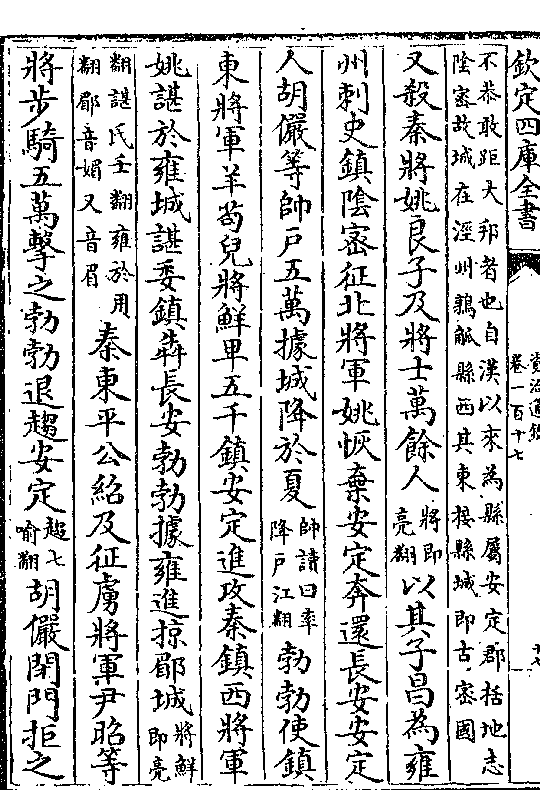 欽定四庫全書
資治通鑑
卷一百十七
不恭敢距大邦者也自漢以來為縣屬安定郡括地志
陰密故城在涇州鶉觚縣西其東接縣城即古密國
又殺秦將姚良子及將士萬餘人將即亮翻以其子昌為雍
州刺史鎮陰密征北將軍姚恢棄安定奔還長安安定
人胡儼等帥戶五萬據城降於夏帥讀曰率降戶江翻勃勃使鎮
東將軍羊苟兒將鮮卑五千鎮安定進攻秦鎮西將軍
姚諶於雍城諶委鎮犇長安勃勃據雍進掠郿城將鮮即亮
翻諶氏壬翻雍於用翻郿音媚又音眉秦東平公紹及征虜將軍尹昭等
將步騎五萬擊之勃勃退趨安定趨七喻翻胡儼閉門拒之